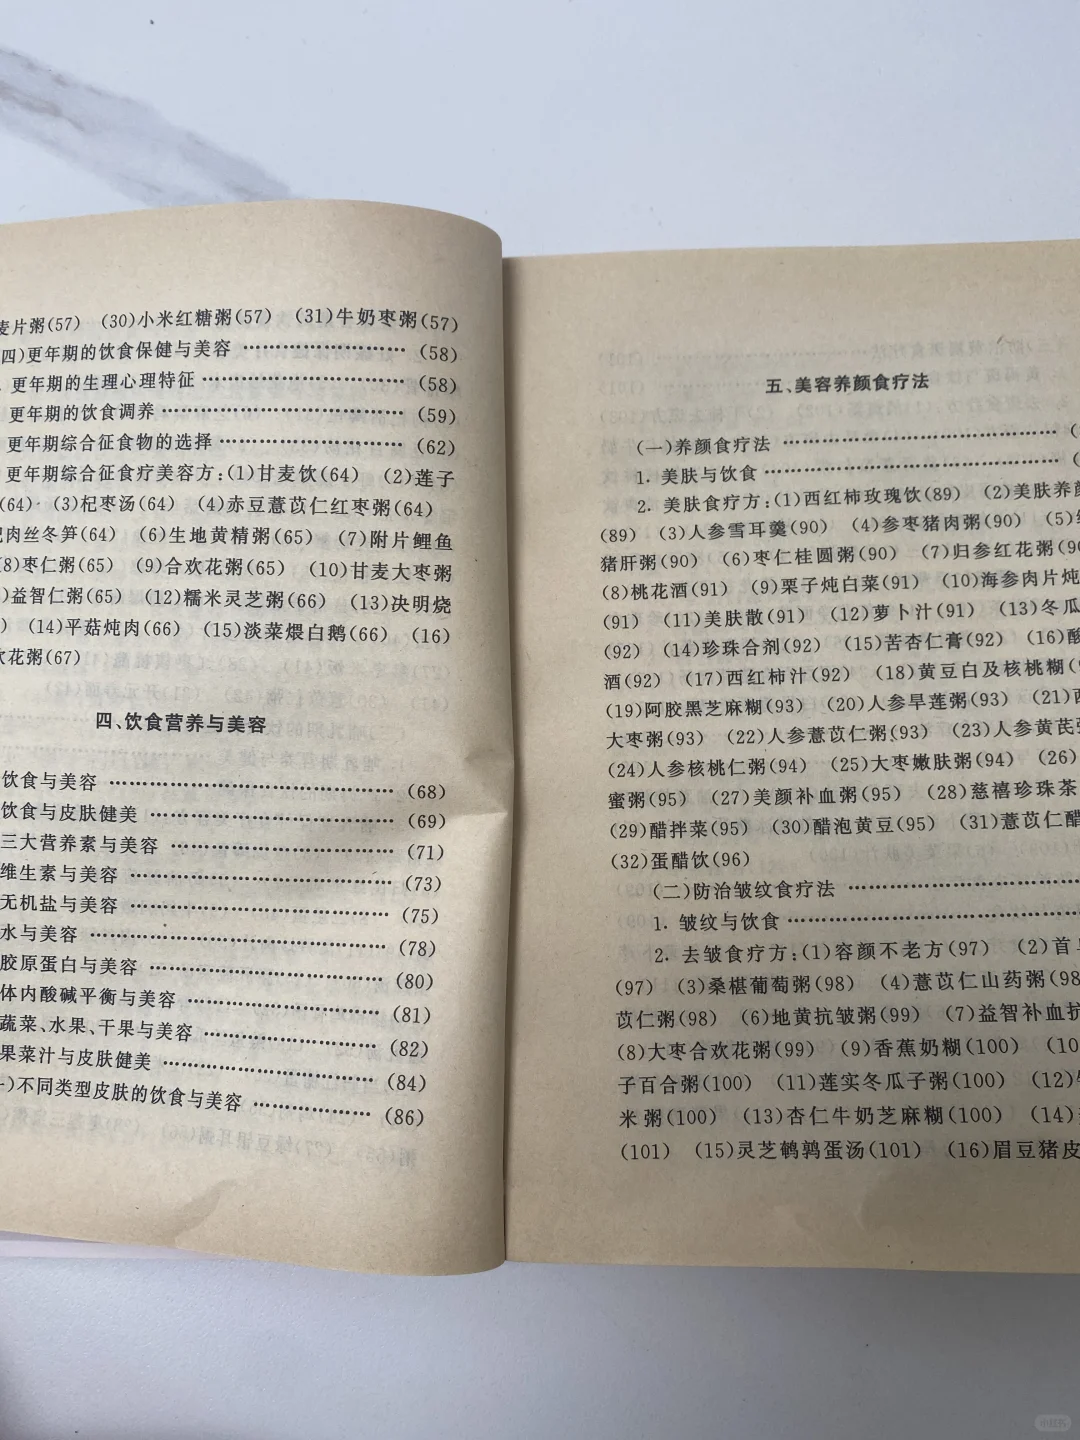 麦片粥(57) (30)小米红糖粥(57) (31)牛奶枣粥(57)
四)更年期的饮食保健与美容 ……………… (58)
更年期的生理心理特征 ……………………… (58)
更年期的饮食调养 …………………………… (59)
更年期综合征食物的选择 …………………… (62)
更年期综合征食疗美容方:(1)甘麦饮(64) (2)莲子
(64) (3)杞枣汤(64) (4)赤豆薏苡仁红枣粥(64)
肉丝冬笋(64) (6)生地黄精粥(65) (7)附片鲤鱼
(8)枣仁粥(65) (9)合欢花粥(65) (10)甘麦大枣粥
)益智仁粥(65) (12)糯米灵芝粥(66) (13)决明烧
) (14)平菇炖肉(66) (15)淡菜煨白鹅(66) (16)
花粥(67)
四、饮食营养与美容
饮食与美容 …………………………………… (68)
饮食与皮肤健美 ……………………………… (69)
三大营养素与美容 …………………………… (71)
维生素与美容 ………………………………… (73)
无机盐与美容 ………………………………… (75)
水与美容 ……………………………………… (78)
胶原蛋白与美容 ……………………………… (80)
体内酸碱平衡与美容 ………………………… (81)
蔬菜、水果、干果与美容 …………………… (82)
果菜汁与皮肤健美 …………………………… (84)
)不同类型皮肤的饮食与美容 ……………… (86)
五、美容养颜食疗法
(一)养颜食疗法 ……………………………… (
1. 美肤与饮食 ………………………………… (
2. 美肤食疗方:(1)西红柿玫瑰饮(89) (2)美肤养颜
(89) (3)人参雪耳羹(90) (4)参枣猪肉粥(90) (5)
猪肝粥(90) (6)枣仁桂圆粥(90) (7)归参红花粥(90
(8)桃花酒(91) (9)栗子炖白菜(91) (10)海参肉片炖
(91) (11)美肤散(91) (12)萝卜汁(91) (13)冬瓜
(92) (14)珍珠合剂(92) (15)苦杏仁膏(92) (16)酸
酒(92) (17)西红柿汁(92) (18)黄豆白及核桃糊(
(19)阿胶黑芝麻糊(93) (20)人参旱莲粥(93) (21)
大枣粥(93) (22)人参薏苡仁粥(93) (23)人参黄芪
(24)人参核桃仁粥(94) (25)大枣嫩肤粥(94) (26)
蜜粥(95) (27)美颜补血粥(95) (28)慈禧珍珠茶
(29)醋拌菜(95) (30)醋泡黄豆(95) (31)薏苡仁醋
(32)蛋醋饮(96)
(二)防治皱纹食疗法 …………………………
1. 皱纹与饮食 …………………………………
2. 去皱食疗方:(1)容颜不老方(97) (2)首
(97) (3)桑椹葡萄粥(98) (4)薏苡仁山药粥(98
苡仁粥(98) (6)地黄抗皱粥(99) (7)益智补血抗
(8)大枣合欢花粥(99) (9)香蕉奶糊(100) (10
子百合粥(100) (11)莲实冬瓜子粥(100) (12)
米粥(100) (13)杏仁牛奶芝麻糊(100) (14)
(101) (15)灵芝鹌鹑蛋汤(101) (16)眉豆猪皮
小红书